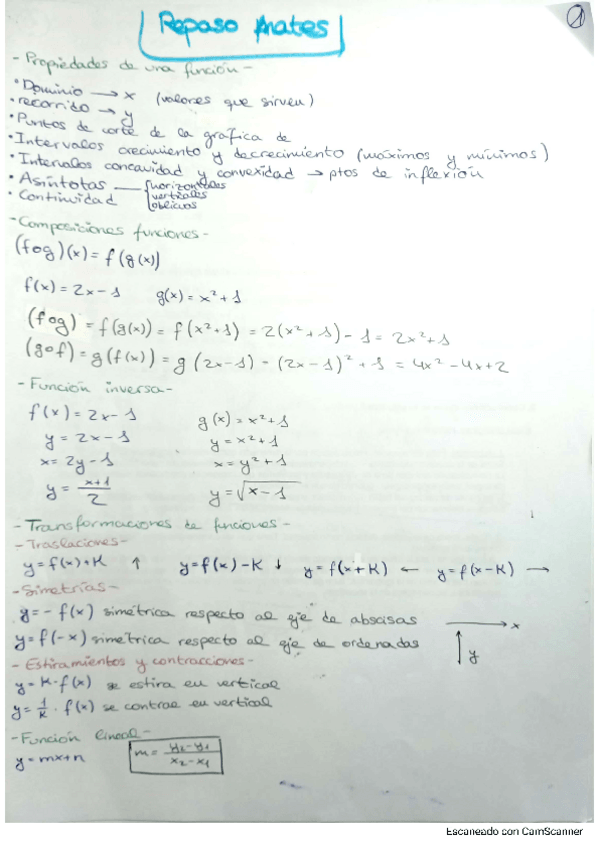 Repaso Mates
1
- Propiedades de una función -
• Dominio → x (valores que sirven)
• recorrido → y
• Puntos de corte de la gráfica de
• Intervalos crecimiento y decrecimiento (máximos y mínimos)
• Intervalos concavidad y convexidad → ptos de inflexión
• Asíntotas — { horizontales
verticales
oblicuas
• Continuidad
- Composiciones funciones -
(fog)(x) = f(g(x))
f(x) = 2x - 1 g(x) = x² + 1
(fog) = f(g(x)) = f(x²+1) = 2(x²+1) - 1 = 2x²+1
(gof) = g(f(x)) = g(2x-1) = (2x-1)² + 1 = 4x² - 4x + 2
- Función inversa -
f(x) = 2x - 1 g(x) = x² + 1
y = 2x - 1 y = x² + 1
x = 2y - 1 x = y² + 1
y = (x+1)/2 y = √(x-1)
- Transformaciones de funciones -
- Traslaciones -
y = f(x) + K ↑ y = f(x) - K ↓ y = f(x+K) ← y = f(x-K) →
- Simetrías -
y = - f(x) simétrica respecto al eje de abscisas → x
y = f(-x) simétrica respecto al eje de ordenadas ↕ y
- Estiramientos y contracciones -
y = K · f(x) se estira en vertical
y = 1/K · f(x) se contrae en vertical
- Función lineal -
y = mx + n m = (y₂ - y₁)/(x₂ - x₁)
Escaneado con CamScanner